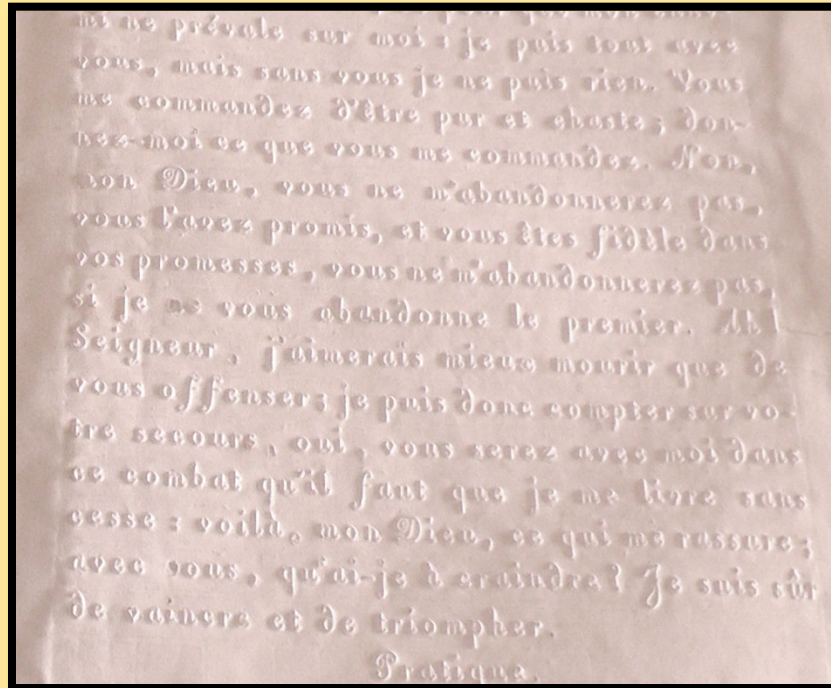 que mon enne-
mi ne prévale sur moi : je puis tout avec
vous, mais sans vous je ne puis rien. Vous
me commandez d'être pur et chaste ; don-
nez-moi ce que vous me commandez. Non,
mon Dieu, vous ne m'abandonnerez pas,
vous l'avez promis, et vous êtes fidèle dans
vos promesses, vous ne m'abandonnerez pas,
si je ne vous abandonne le premier. Ah !
Seigneur, j'aimerais mieux mourir que de
vous offenser ; je puis donc compter sur vo-
tre secours, oui, vous serez avec moi dans
ce combat qu'il faut que je me livre sans
cesse : voilà, mon Dieu, ce qui me rassure ;
avec vous, qu'ai-je à craindre ? Je suis sûr
de vaincre et de triompher.
Pratique.